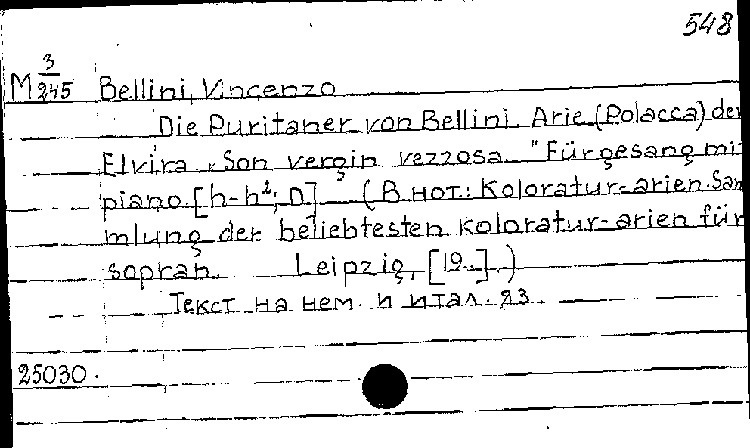 548
M 3/245 Bellini, Vincenzo
Die Puritaner von Bellini. Arie (Polacca) der
Elvira „Son vergin vezzosa" Für gesang mit
piano. [h-h²; D] (В нот.: Koloratur-arien. Sam
mlung der beliebtesten koloratur-arien für
sopran. Leipzig, [19..].)
Текст на нем. и итал. яз.
25030.